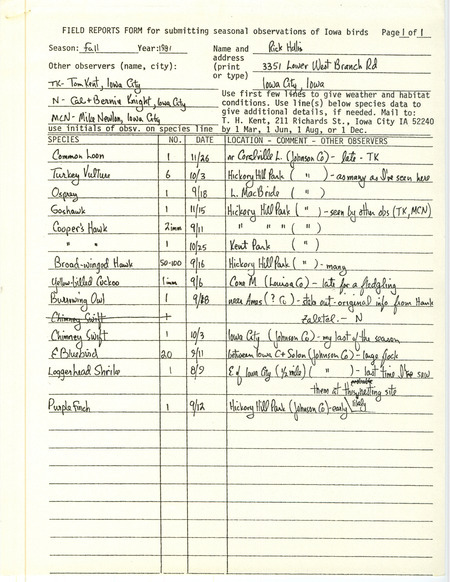 FIELD REPORTS FORM for submitting seasonal observations of Iowa birds Page 1 of 1
Season: Fall Year: 1981 Name and Rick Hollis
address
Other observers (name, city): (print 3351 Lower West Branch Rd
or type)
TK - Tom Kent, Iowa City Iowa City, Iowa
N - Cal + Bernie Knight, Iowa City
MCN - Mike Newlon, Iowa City
Use first few lines to give weather and habitat
conditions. Use line(s) below species data to
give additional details, if needed. Mail to:
T. H. Kent, 211 Richards St., Iowa City IA 52240
use initials of obsv. on species line by 1 Mar, 1 Jun, 1 Aug, or 1 Dec.
SPECIES NO. DATE LOCATION - COMMENT - OTHER OBSERVERS
Common Loon 1 11/26 nr Coralville L. (Johnson Co) - late - TK
Turkey Vulture 6 10/3 Hickory Hill Park ( " ) - as many as I've seen here
Osprey 1 9/18 L. MacBride ( " )
Goshawk 1 11/15 Hickory Hill Park ( " ) - seen by other obs (TK, MCN)
Cooper's Hawk 2 imm 9/11 " " " ( " )
" " 1 10/25 Kent Park ( " )
Broad-winged Hawk 50-100 9/16 Hickory Hill Park ( " ) - many
Yellow-billed Cuckoo 1 imm 9/6 Cone M (Louisa Co) - late for a fledgling
Burrowing Owl 1 near Ames (? Co) - stake out - original info from Hank
Chimney Swift + Zaletel. - N
Chimney Swift 1 10/3 Iowa City (Johnson Co) - my last of the season
E Bluebird 20 9/11 between Iowa C + Solon (Johnson Co) - large flock
Loggerhead Shrike 1 8/9 E of Iowa City (½ mile) ( " ) - last time I've saw
them at their probable nesting site
Purple Finch 1 9/12 Hickory Hill Park (Johnson Co) - early